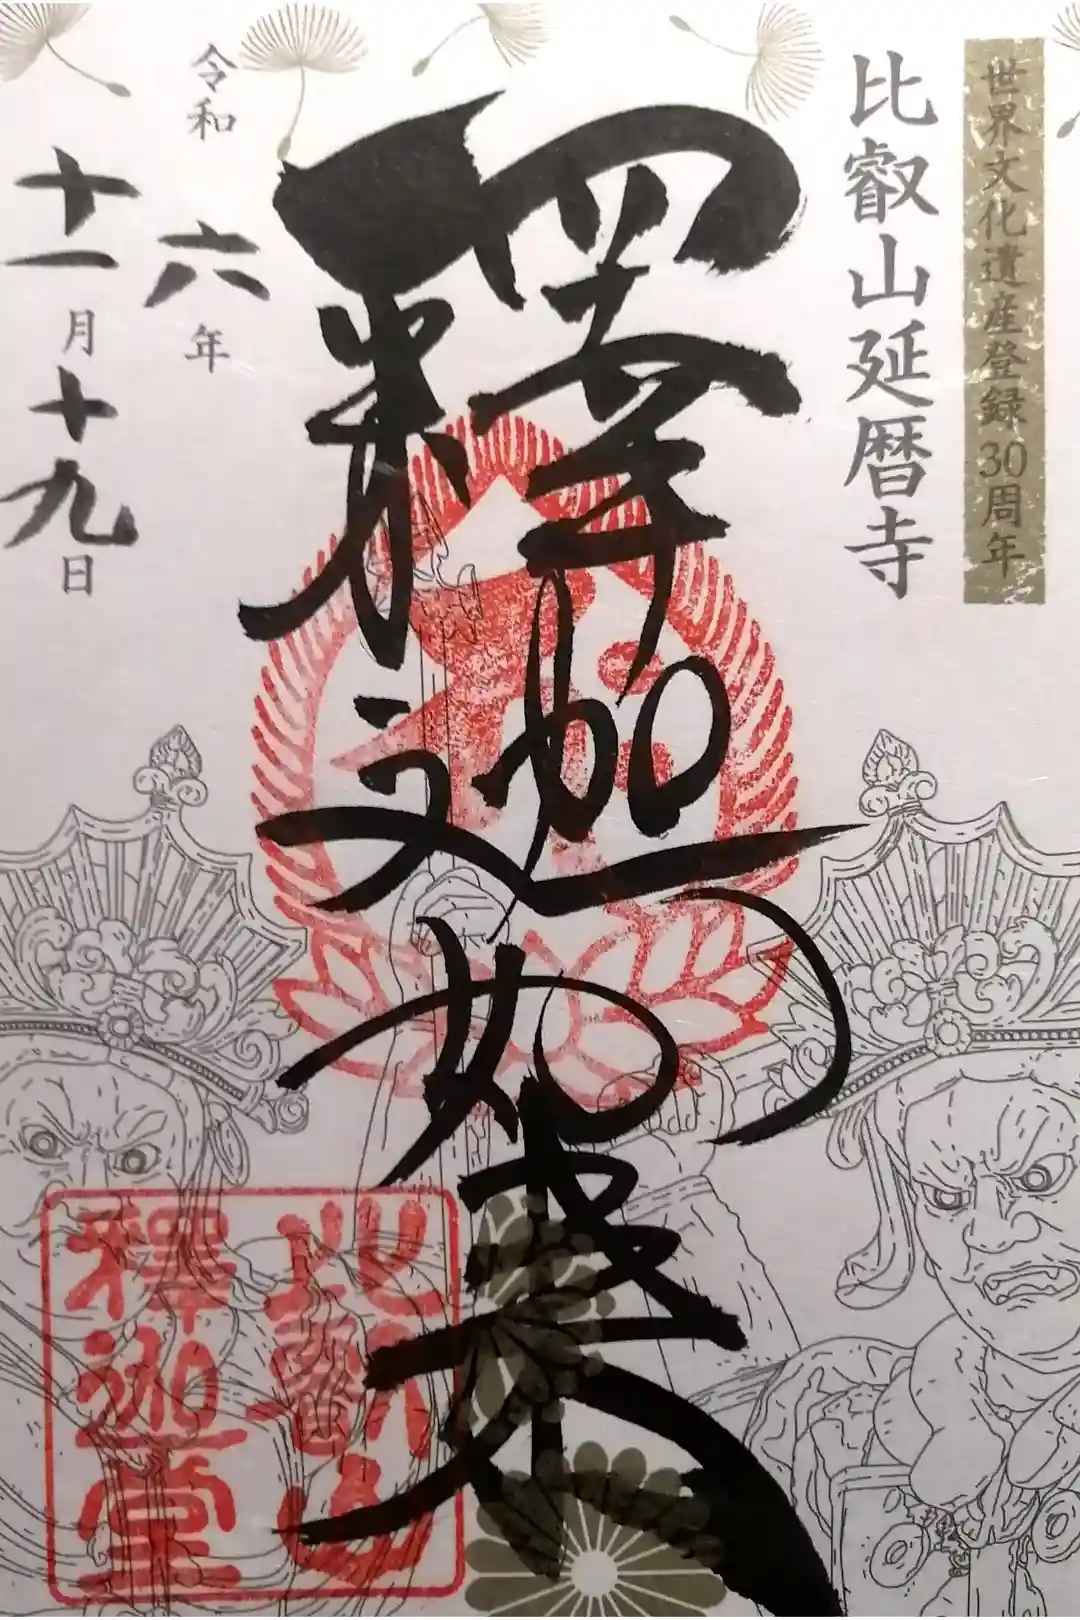 世界文化遺産登録30周年
比叡山延暦寺
釋迦如来
令和六年
十一月十九日
比叡山
釋迦堂